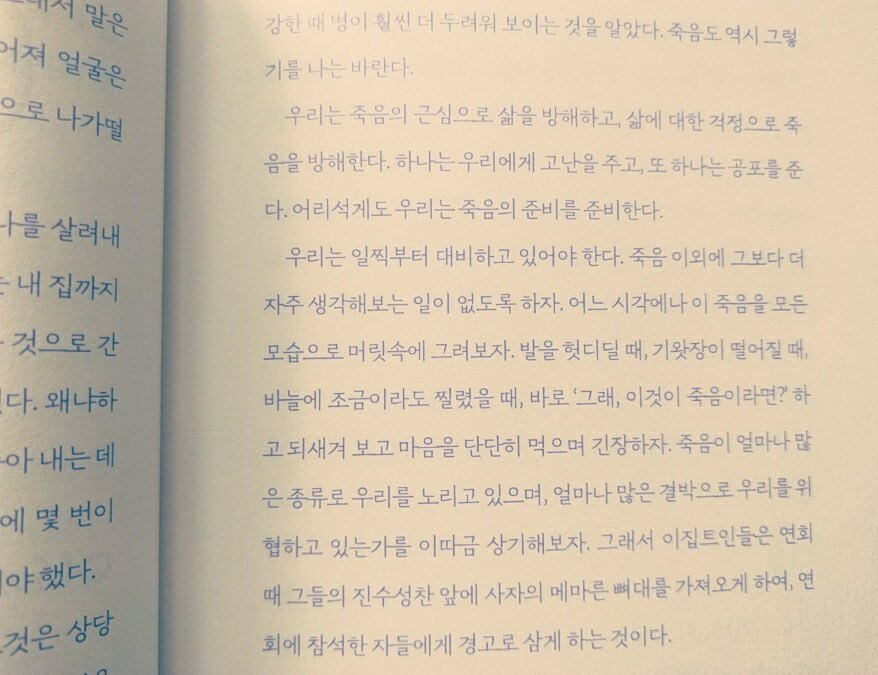 말은
얼굴은
으로 나가떨
나를 살려내
내 집까지
것으로 간
왜냐하
내는 데
에 몇 번이
야 했다.
것은 상당
강한 때 병이 훨씬 더 두려워 보이는 것을 알았다. 죽음도 역시 그렇
기를 나는 바란다.
우리는 죽음의 근심으로 삶을 방해하고, 삶에 대한 걱정으로 죽
음을 방해한다. 하나는 우리에게 고난을 주고, 또 하나는 공포를 준
다. 어리석게도 우리는 죽음의 준비를 준비한다.
우리는 일찍부터 대비하고 있어야 한다. 죽음 이외에 그보다 더
자주 생각해보는 일이 없도록 하자. 어느 시각에나 이 죽음을 모든
모습으로 머릿속에 그려보자. 발을 헛디딜 때, 기왓장이 떨어질 때,
바늘에 조금이라도 찔렸을 때, 바로 ‘그래, 이것이 죽음이라면?’ 하
고 되새겨 보고 마음을 단단히 먹으며 긴장하자. 죽음이 얼마나 많
은 종류로 우리를 노리고 있으며, 얼마나 많은 결박으로 우리를 위
협하고 있는가를 이따금 상기해보자. 그래서 이집트인들은 연회
때 그들의 진수성찬 앞에 사자의 메마른 뼈대를 가져오게 하여, 연
회에 참석한 자들에게 경고로 삼게 하는 것이다.